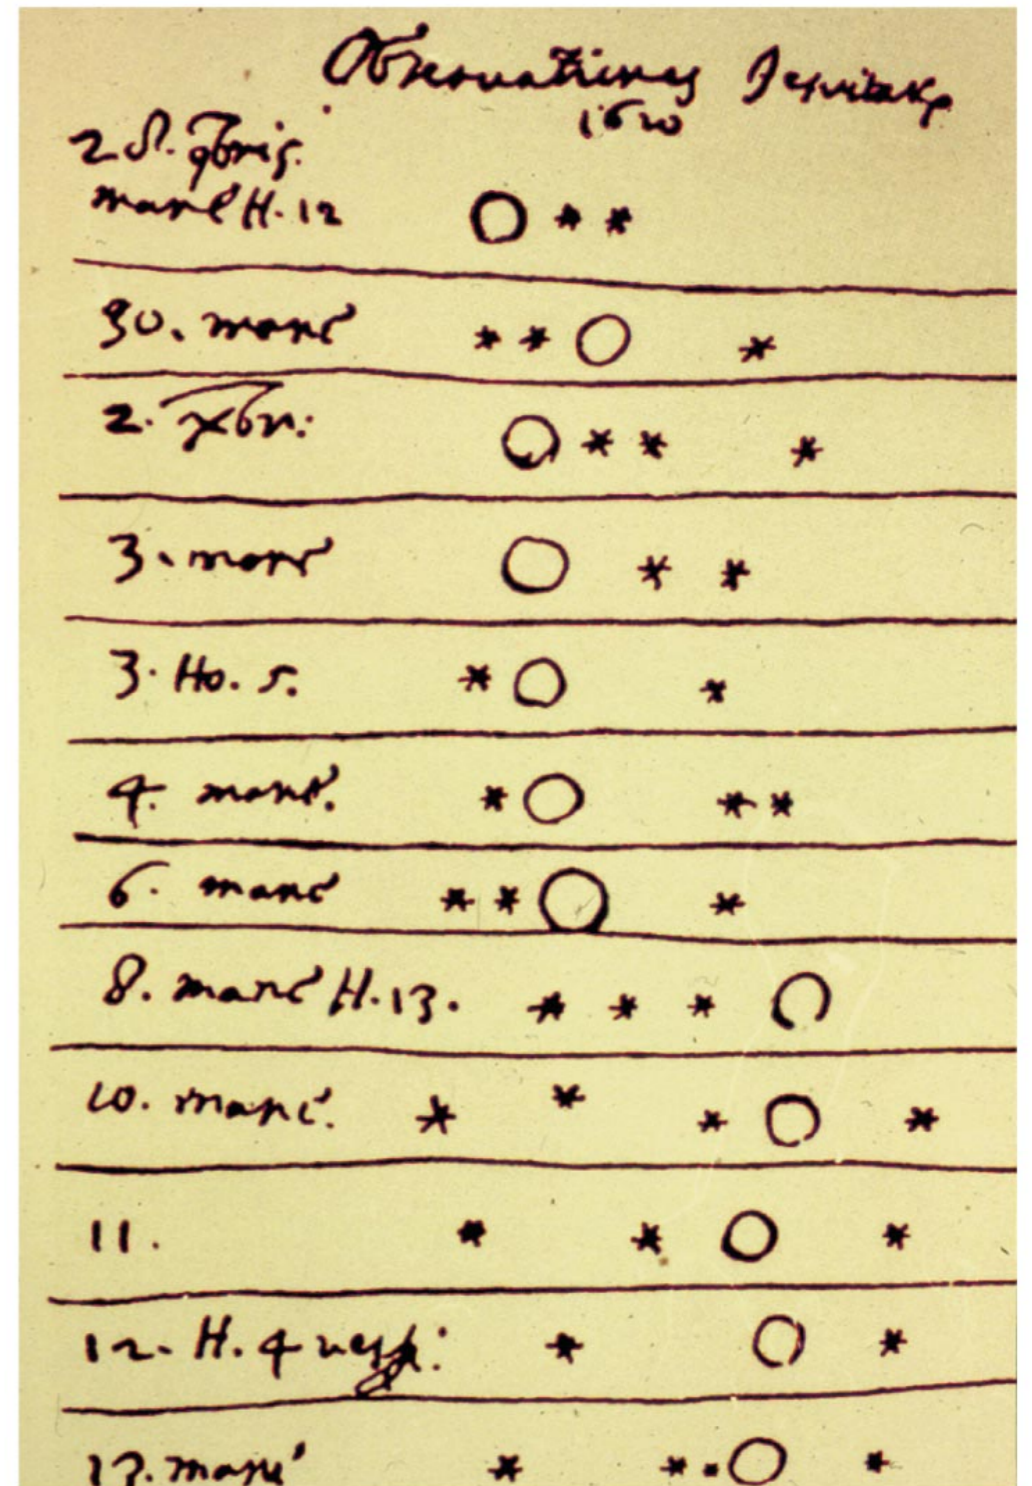 Observationes Jesuitarũ
1610
9bris.
mane H. 12
30. mane
2. Xbr:
3. mane
3. Ho. 5.
4. mane.
6. mane
8. mane H. 13.
10. mane.
11.
12. H. 4 vesp:
13. mane